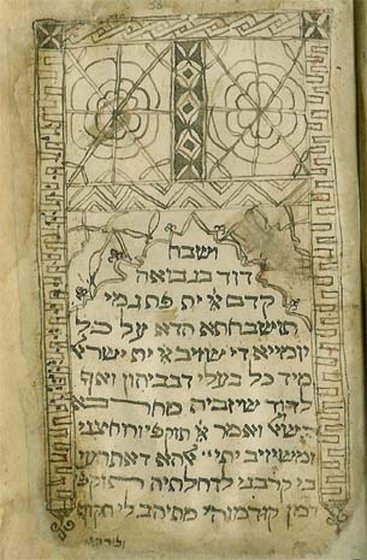 ושבח
דוד בנבואה
קדם יי ית פתגמי
תושבחתא הדא על כל
יומייא די שיזיב יי ית ישרא
מיד כל בעלי דבביהון ואף
לדוד שיזביה מחרבא
ואמר יי תוקפי ורוחצני
ומשיזיב יתי אלהא דאתרעי
בי קרבני לדחלתיה תוקפי
דמן קודמוהי מתיהב לי תקוף